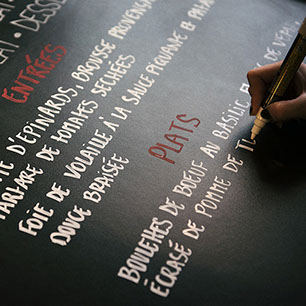 PLAT • DESSE
ENTRÉES
E D'ÉPINARDS, BROUSSE PROVENÇA
PARTAGE DE TOMATES SÉCHÉES
FOIE DE VOLAILLE À LA SAUCE PIQUANTE ET
DOUCE BRAISÉE
PLATS
BOULETTES DE BOEUF AU BASILIC
ÉCRASÉ DE POMME DE